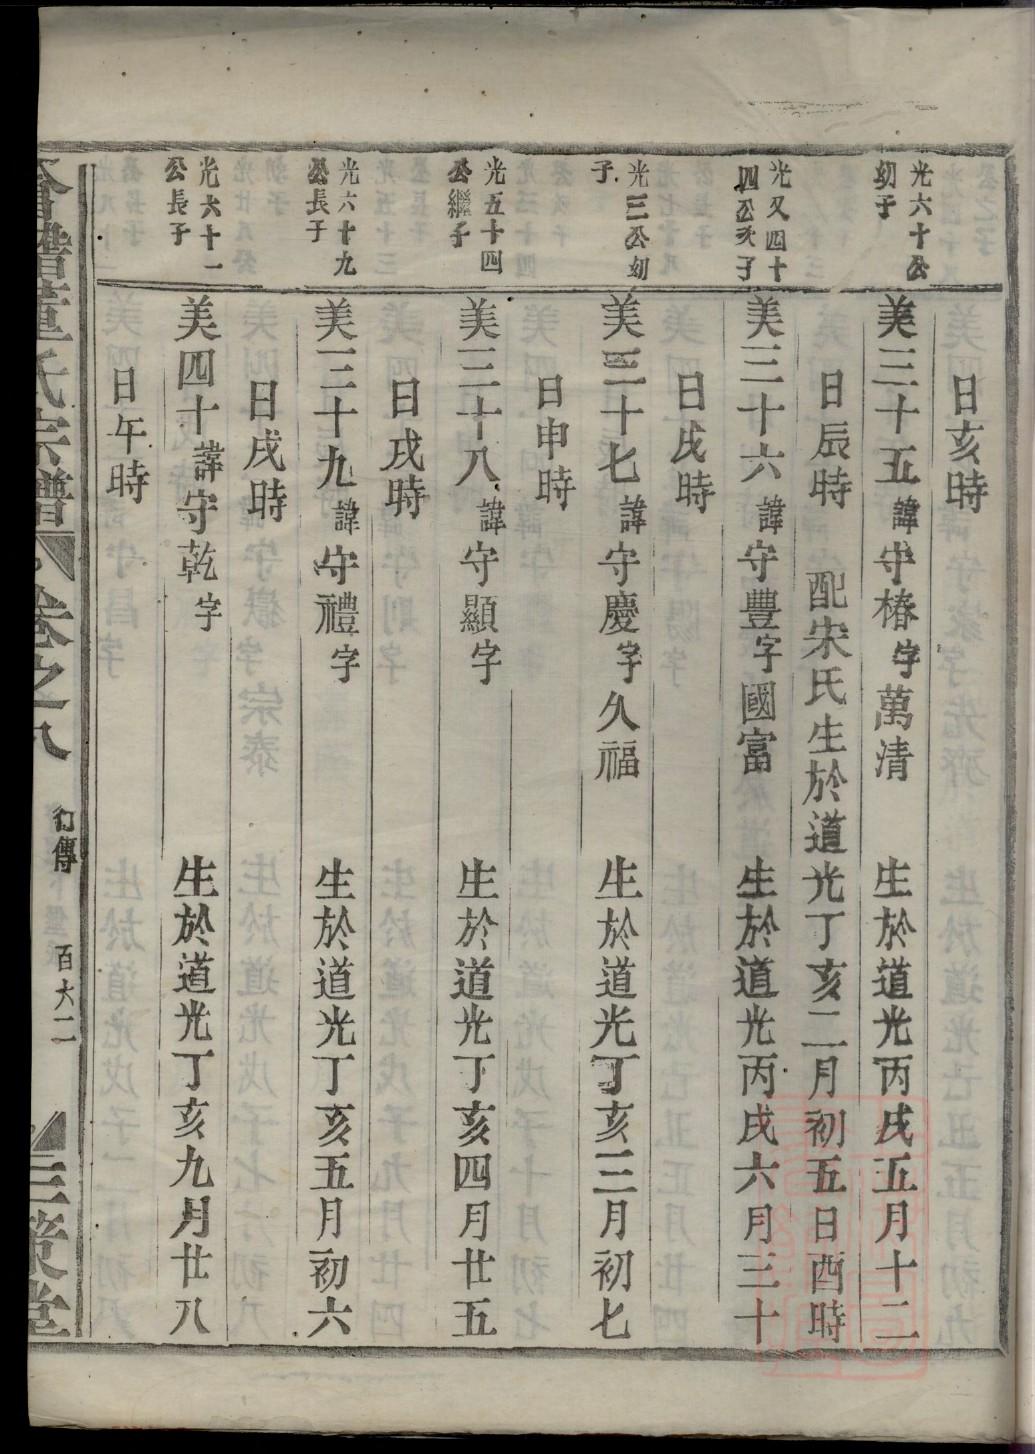 日亥時
光六十公
幼子
美三十五諱守椿字萬清 生於道光丙戌五月十二
日辰時 配宋氏生於道光丁亥二月初五日酉時
光又四十
四公次子
美三十六諱守豐字國富 生於道光丙戌六月三十
日戌時
光三公幼
子
美三十七諱守慶字久福 生於道光丁亥三月初七
日申時
光五十四
公繼子
美三十八諱守顯字 生於道光丁亥四月廿五
日戌時
光六十九
公長子
美三十九諱守禮字 生於道光丁亥五月初六
日戌時
光六十一
公長子
美四十諱守乾字 生於道光丁亥九月廿八
日午時
董氏宗譜 卷之八 行傳 百六二 三策堂